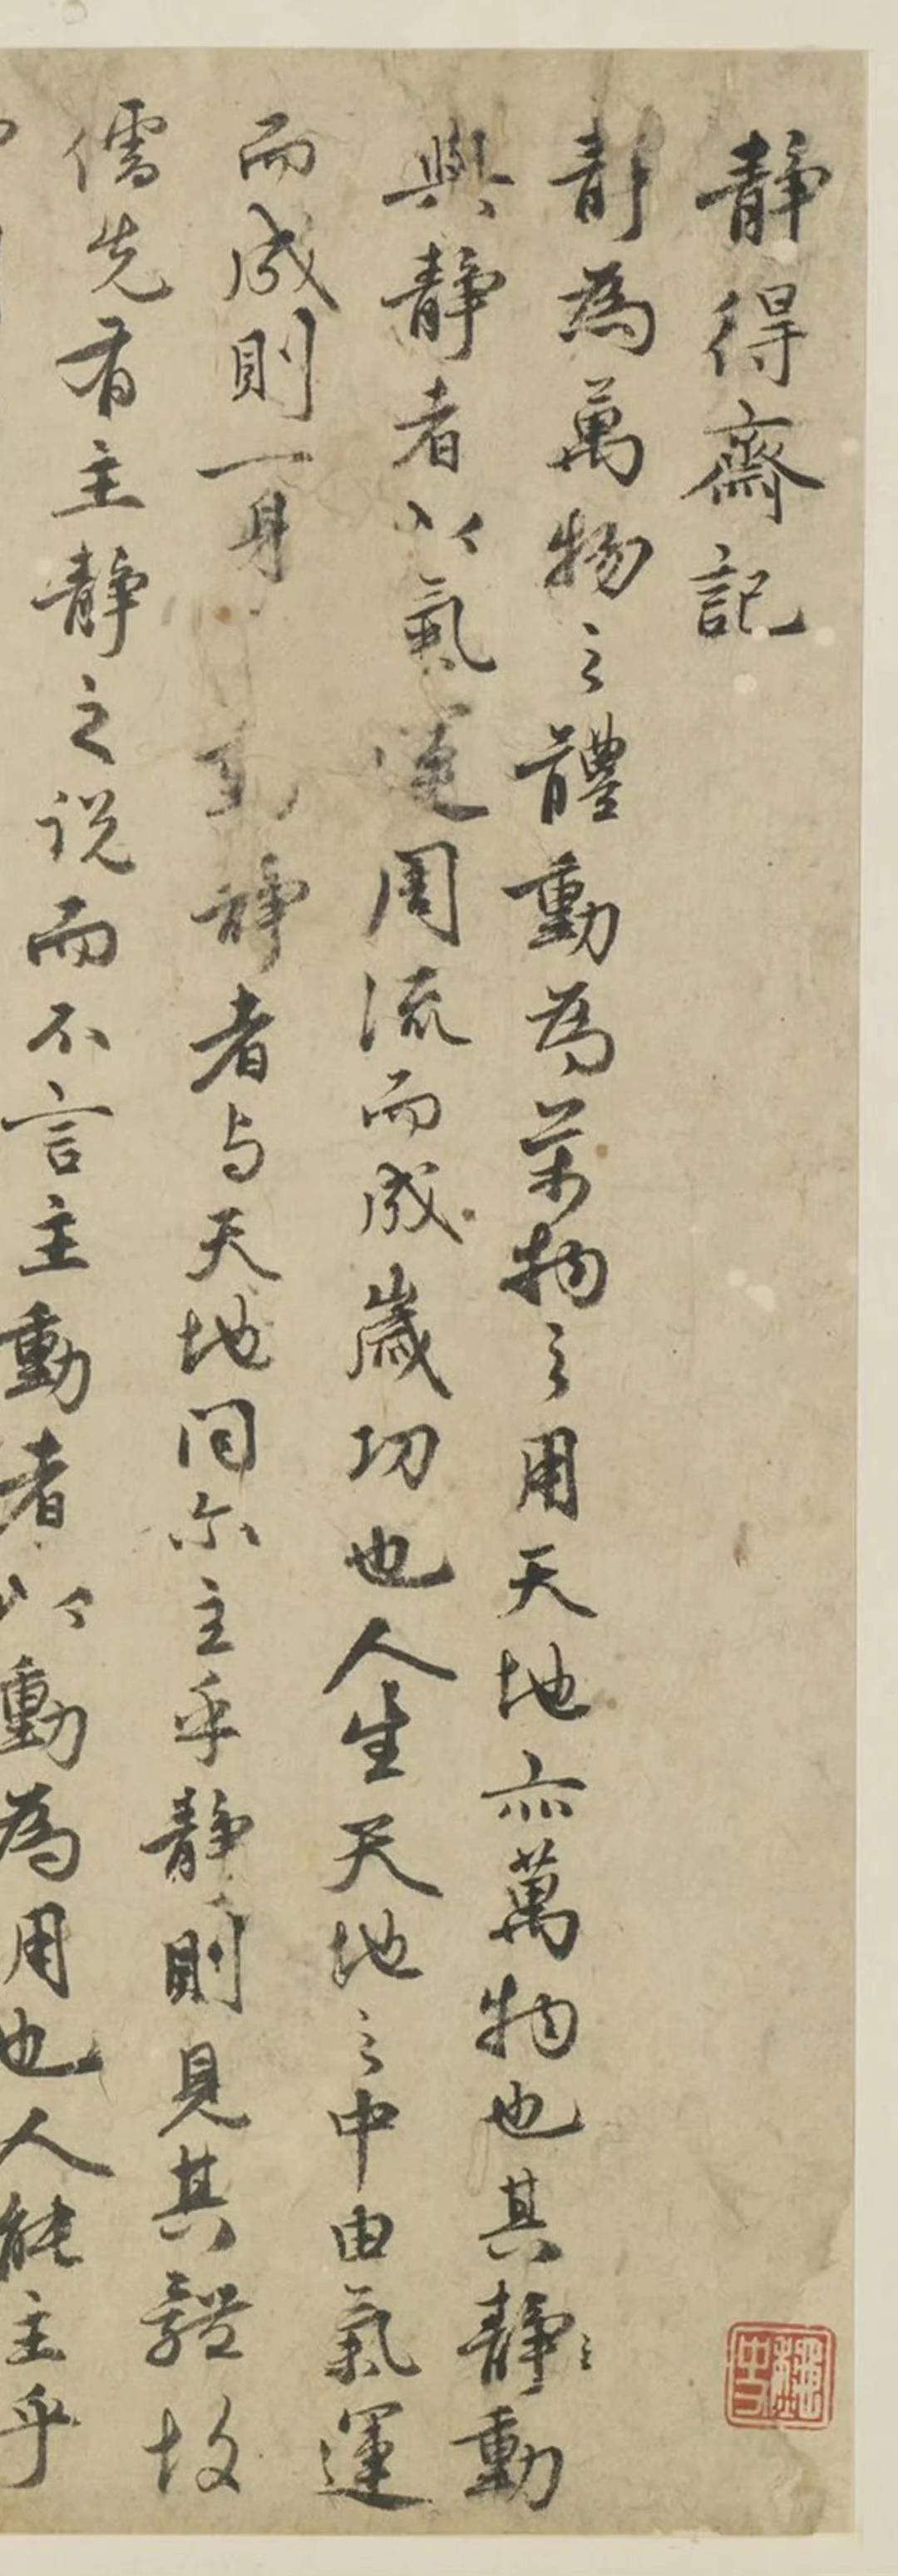 静得齋記
静為萬物之體動為萬物之用天地亦萬物也其静動
與静者以氣運周流而成歲功也人生天地之中由氣運
而成則一身動静者与天地同尔主乎静則見其體故
儒先有主静之说而不言主動者以動為用也人能主乎